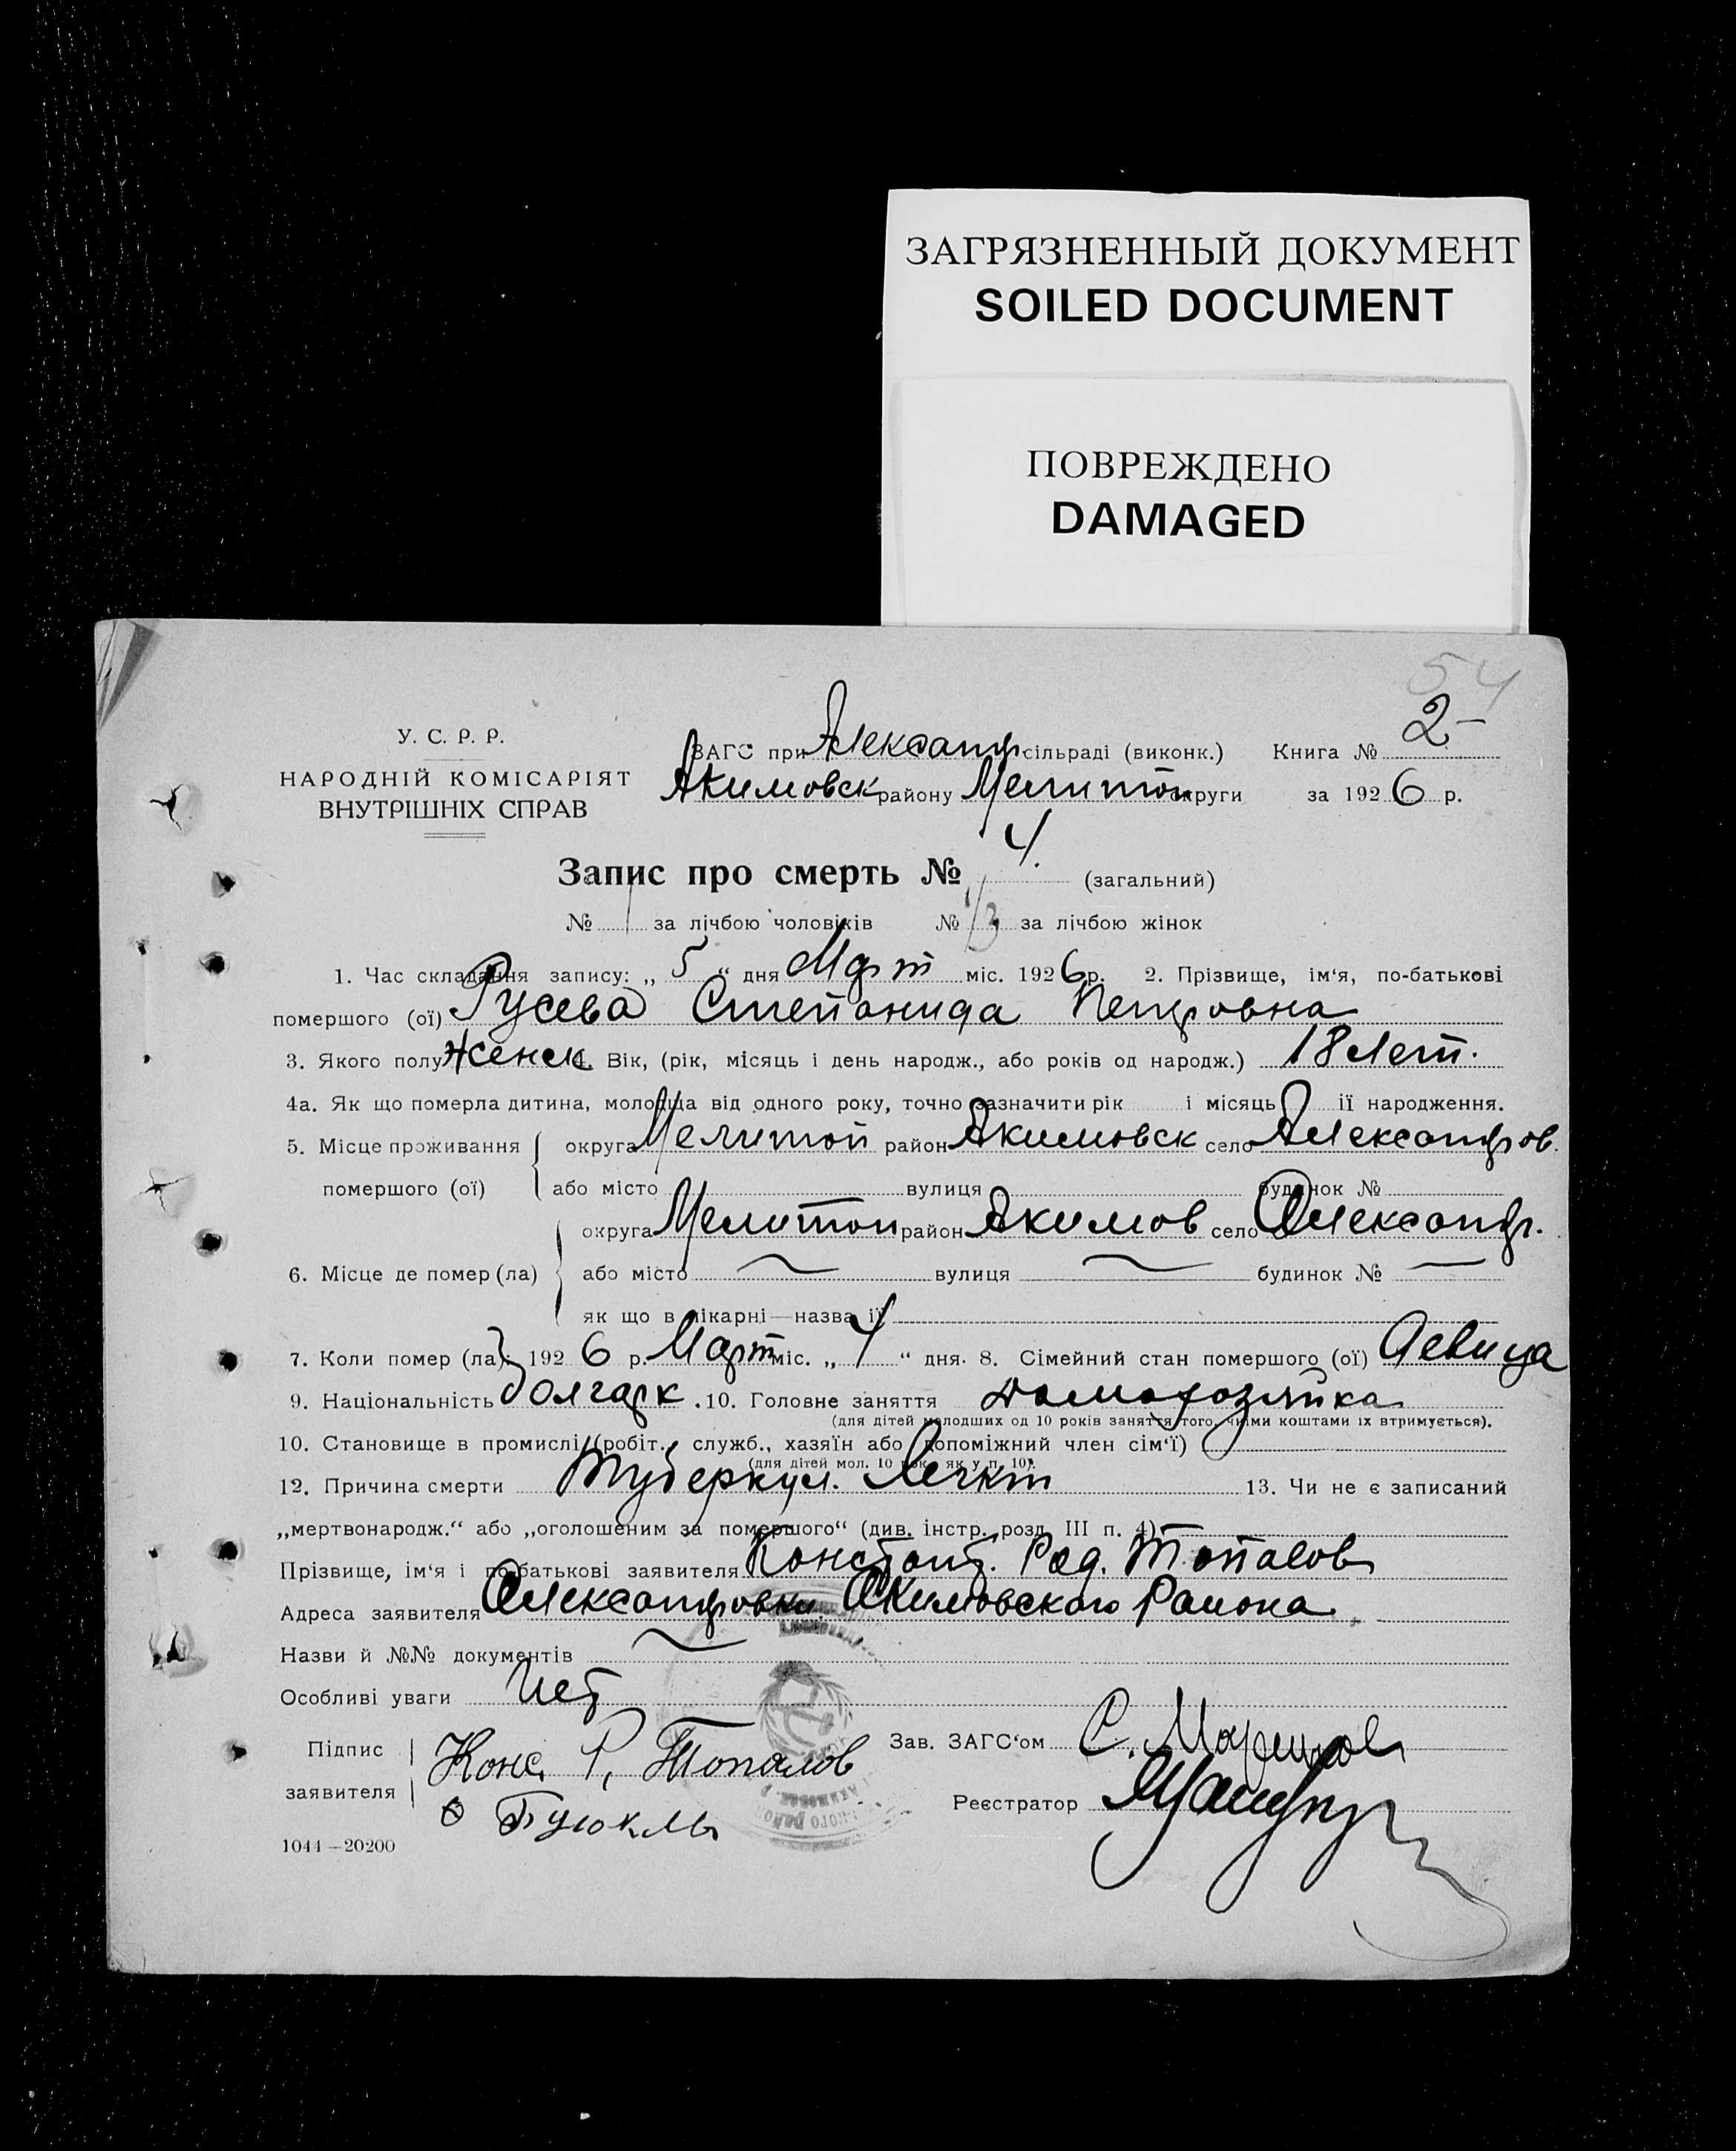 ЗАГРЯЗНЕННЫЙ ДОКУМЕНТ
SOILED DOCUMENT
ПОВРЕЖДЕНО
DAMAGED
54
У. С. Р. Р.
НАРОДНІЙ КОМІСАРІЯТ
ВНУТРІШНІХ СПРАВ
ЗАГС при Александр сільраді (виконк.) Книга № 2-
Акимовск району Мелитоп округи за 1926 р.
Запис про смерть № 4. (загальний)
№ за лічбою чоловіків № 3 за лічбою жінок
1. Час складання запису: „ 5 “ дня Март міс. 1926 р. 2. Прізвище, ім‘я, по-батькові
помершого (ої) Русева Степанида Петровна
3. Якого полу Женск 4. Вік, (рік, місяць і день народж., або років од народж.) 18 Лет.
4а. Як що померла дитина, молодща від одного року, точно зазначити рік і місяць її народження.
5. Місце проживання округа Мелитоп район Акимовск село Александров.
помершого (ої) або місто вулиця будинок №
округа Мелитоп район Акимов село Александр.
6. Місце де помер (ла) або місто вулиця будинок №
як що в лікарні—назва її
7. Коли помер (ла): 1926 р. Март міс. „ 4 “ дня. 8. Сімейний стан помершого (ої) Девица
9. Національність болгарк. 10. Головне заняття Домохозяйка
(для дітей молодших од 10 років заняття того, чиїми коштами їх втримується).
10. Становище в промислі (робіт., служб., хазяїн або допоміжний член сім‘ї)
(для дітей мол. 10 рок. як у п. 10).
12. Причина смерти Туберкул. Легкт 13. Чи не є записаний
„мертвонародж.“ або „оголошеним за помершого“ (див. інстр. розд. III п. 4)
Прізвище, ім‘я і по-батькові заявителя Констант. Род. Топалов
Адреса заявителя Александровки Акимовского Раиона
Назви й №№ документів
Особливі уваги Нет
Підпис заявителя Конс. Р. Топалов Зав. ЗАГС‘ом С.
Реєстратор
1044—20200